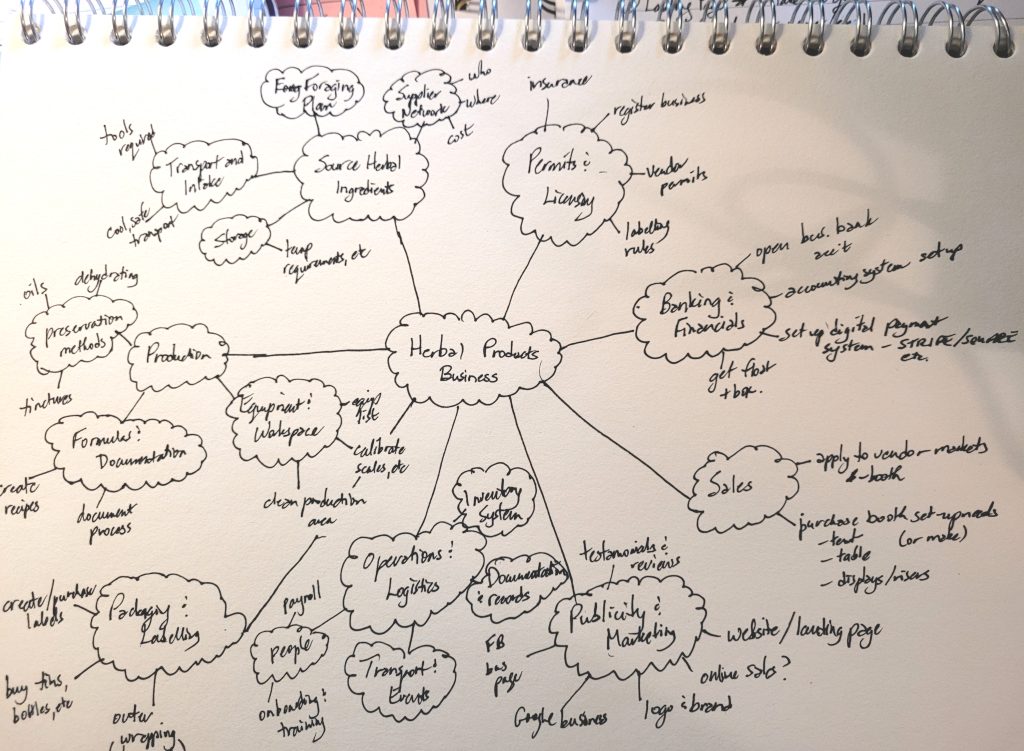 Foraging
Plan
Supplier
Network
who
where
cost
insurance
register business
tools
required
Transport and
Intake
cool, safe
transport
Source Herbal
Ingredients
Storage
temp
requirements, etc
Permits &
vendor
permits
labelling
rules
open bus. bank
acc't
Banking &
Financials
accounting system set up
set up digital payment
system - STRIPE/SQUARE
etc.
get float
+ box.
oils
dehydrating
preservation
methods
tinctures
Production
Herbal Products
Business
Equipment &
Workspace
equip
list
calibrate
scales, etc
clean production
area
Formulas &
Documentation
create
recipes
document
process
Sales
apply to vendor markets
& booth
purchase book set-up needs
- tent (or make)
- table
- displays/risers
Inventory
System
Operations &
Logistics
Documentation
& records
payroll
people
onboarding &
training
Transport &
Events
testimonials &
reviews
Publicity &
Marketing
website/landing page
online sales?
logo & brand
Google business
FB
bus
page
create/purchase
labels
Packaging &
Labelling
buy tins,
bottles, etc
outer
wrapping